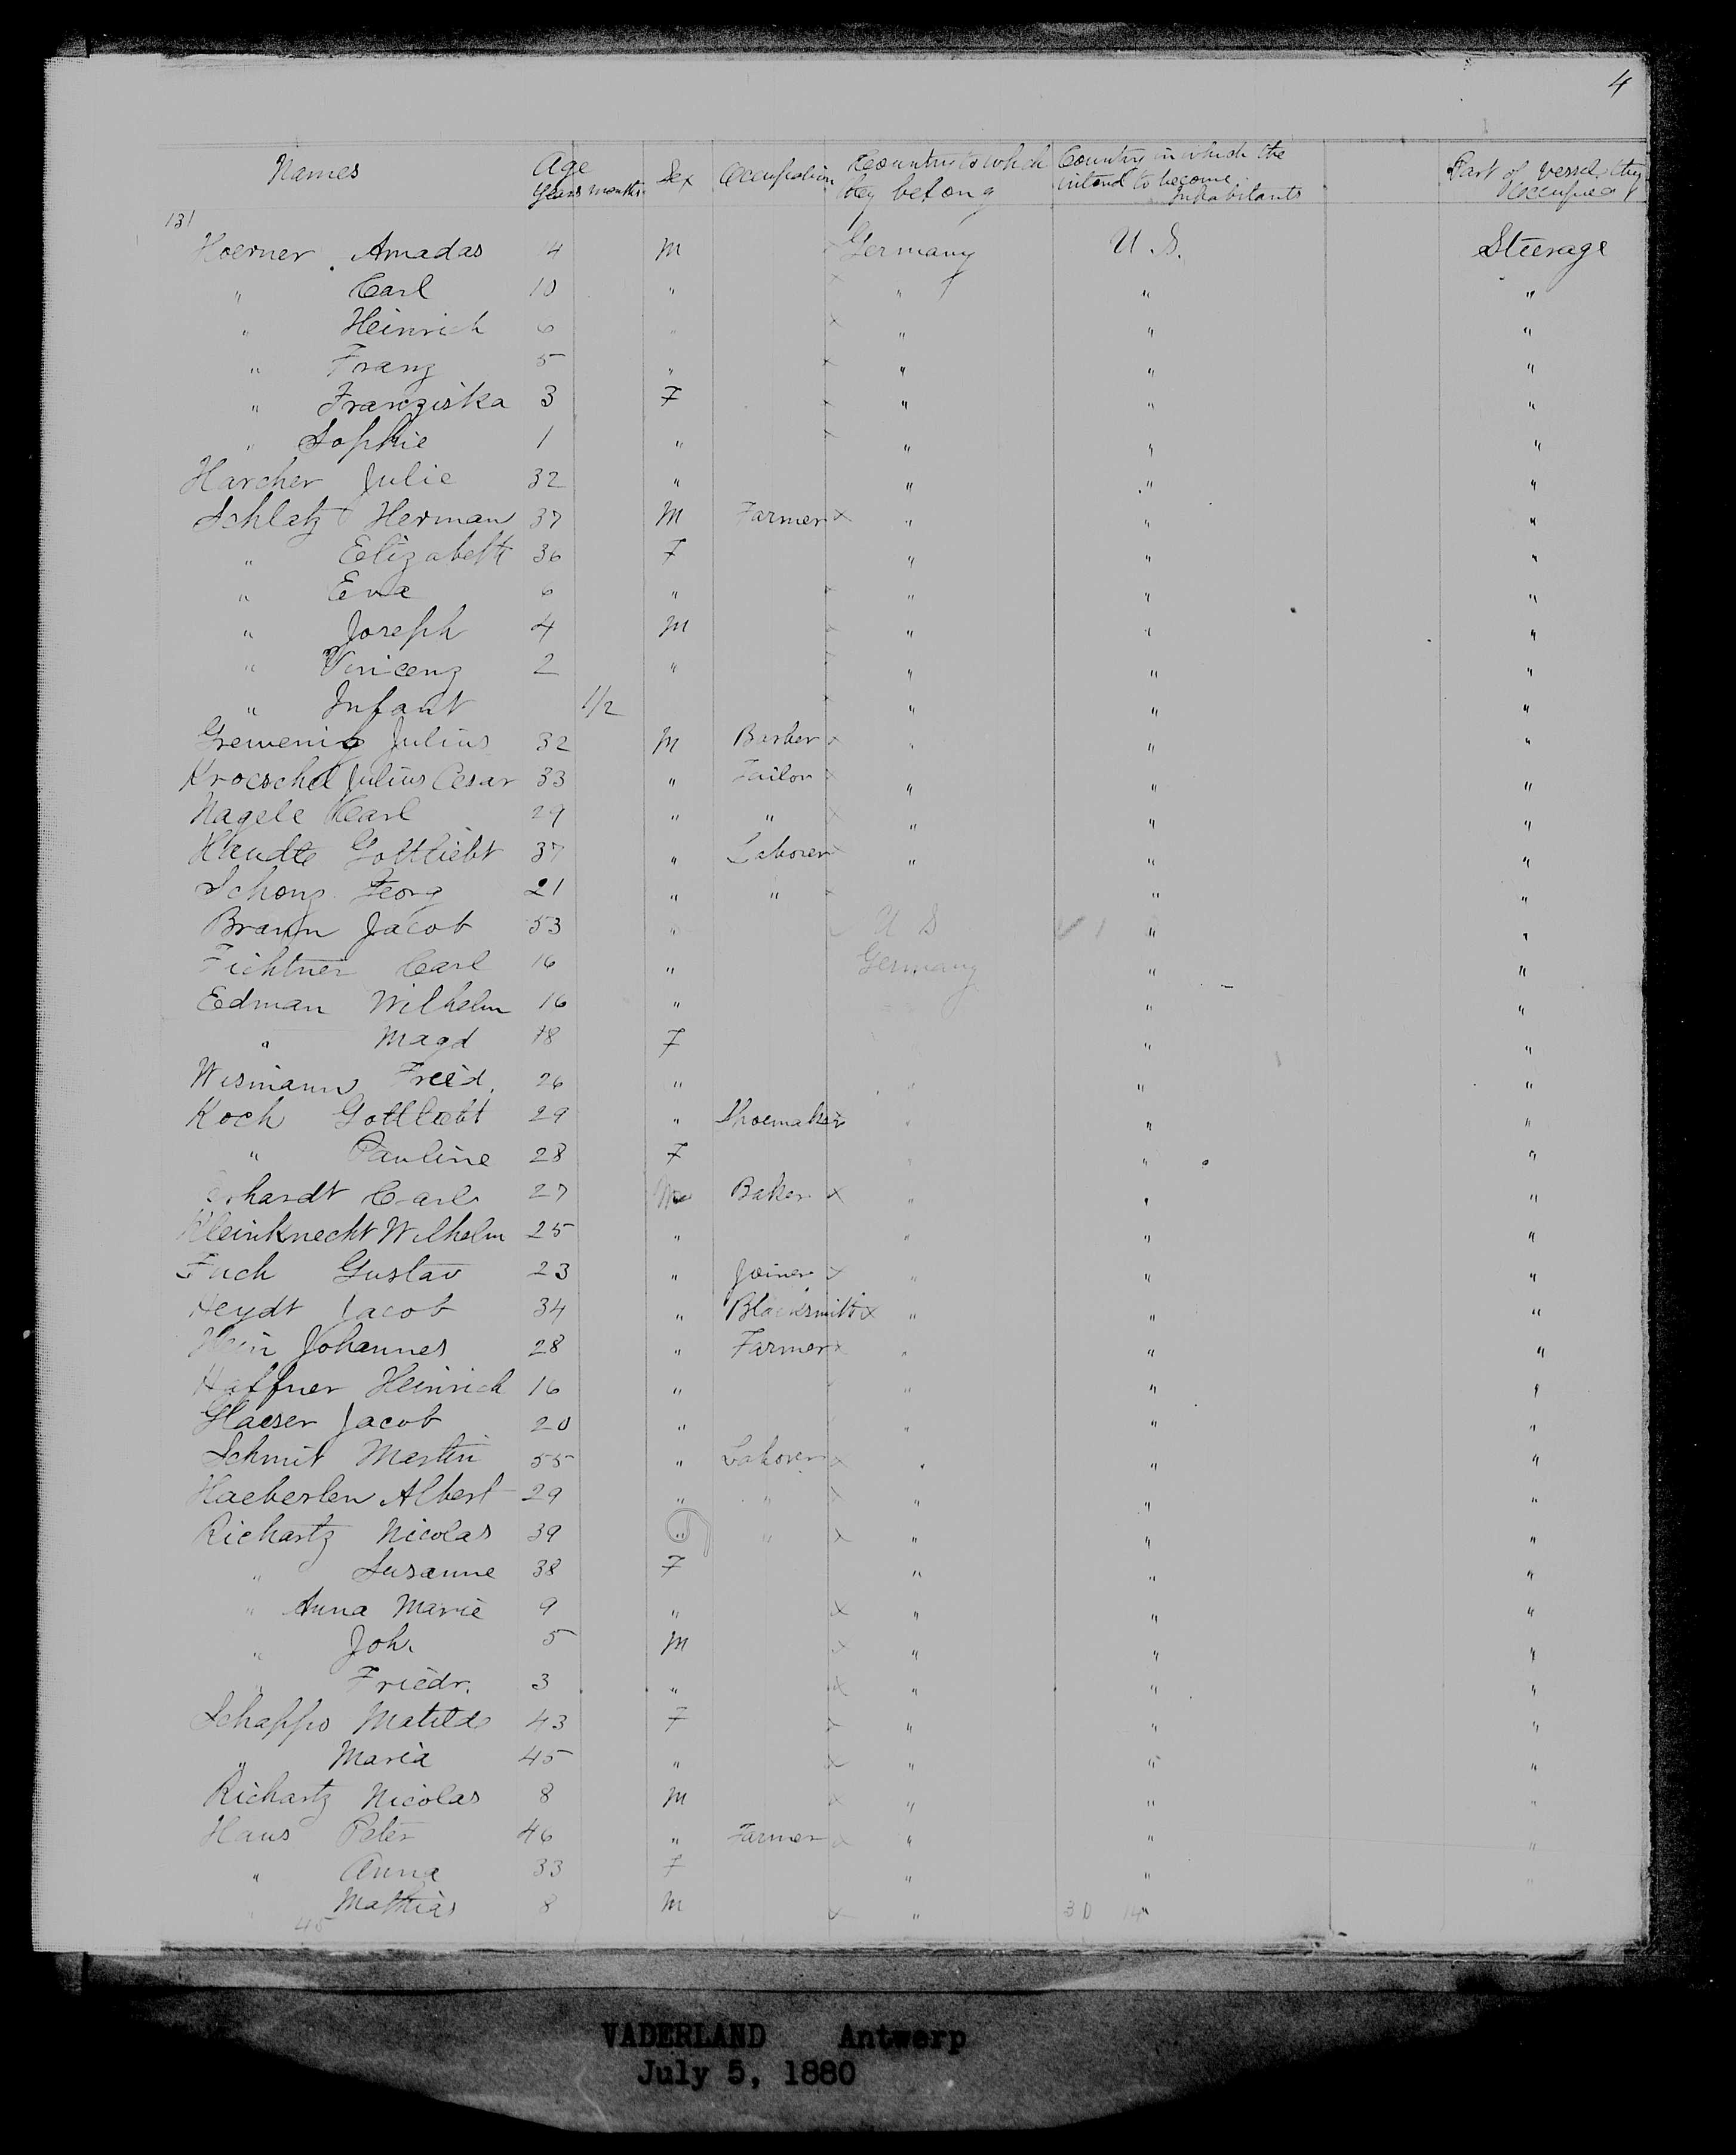 4
Names Age Years months Sex Occupation Country to which they belong Country in which the intend to become Inhabitants Part of vessel they Occupied
131
Hoerner Amadas 14 M Germany U.S. Steerage
" Carl 10 " " " "
" Heinrich 6 " × " " "
" Franz 5 " × " " "
" Franziska 3 F × " " "
" Sophie 1 " × " " "
Harcher Julie 32 " " " "
Schlatz Herman 37 M Farmer × " " "
" Elizabeth 36 F " " "
" Eva 6 " × " " "
" Joseph 4 M × " " "
" Vincenz 2 " " " "
" Infant 1/2 × " " "
Greweni Julius 32 M Barber × " " "
Kroeschel Julius Cesar 33 " Tailor × " " "
Nagele Carl 29 " " × " " "
Haudte Gottliebt 37 " Laborer × " " "
Schong Georg 21 " " " "
Braun Jacob 53 " U S " "
Fichtner Carl 16 " Germany " "
Edman Wilhelm 16 " " "
" Magd 18 F " "
Wismann Fried. 26 " " " "
Koch Gottliebt 29 " Shoemaker × " " "
" Pauline 28 F " " "
Erhardt Carl 27 M Baker × " " "
Kleinknecht Wilhelm 25 " " " "
Fuch Gustav 23 " Joiner × " " "
Heydt Jacob 34 " Blacksmith × " " "
Hein Johannes 28 " Farmer × " " "
Haffner Heinrich 16 " " " "
Glaeser Jacob 20 " " " "
Schmit Martin 55 " Laborer × " " "
Haeberlen Albert 29 " " × " " "
Richartz Nicolas 39 " " × " " "
" Susanne 38 F " " "
" Anna Marie 9 " × " " "
" Joh. 5 M × " " "
" Friedr. 3 " × " " "
Schappo Matilde 43 F × " " "
" Maria 45 " × " " "
Richartz Nicolas 8 M × " " "
Haus Peter 46 " Farmer × " " "
" Anna 33 F " " "
" Mathias 8 M × " " 
45 30 14
VADERLAND Antwerp
July 5, 1880